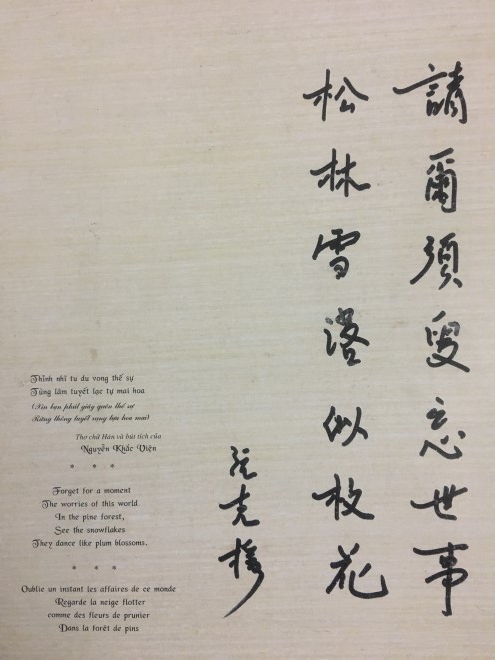 請爾須臾忘世事
松林雪落似枚花
阮克
Thỉnh nhĩ tu du vong thế sự
Tùng lâm tuyết lạc tự mai hoa
(Xin bạn phút giây quên thế sự
Rừng thông tuyết rụng tựa hoa mai)
Thơ chữ Hán và bút tích của
Nguyễn Khắc Viện
* * *
Forget for a moment
The worries of this world
In the pine forest,
See the snowflakes
They dance like plum blossoms.
* * *
Oublie un instant les affaires de ce monde
Regarde la neige flotter
comme des fleurs de prunier
Dans la forêt de pins